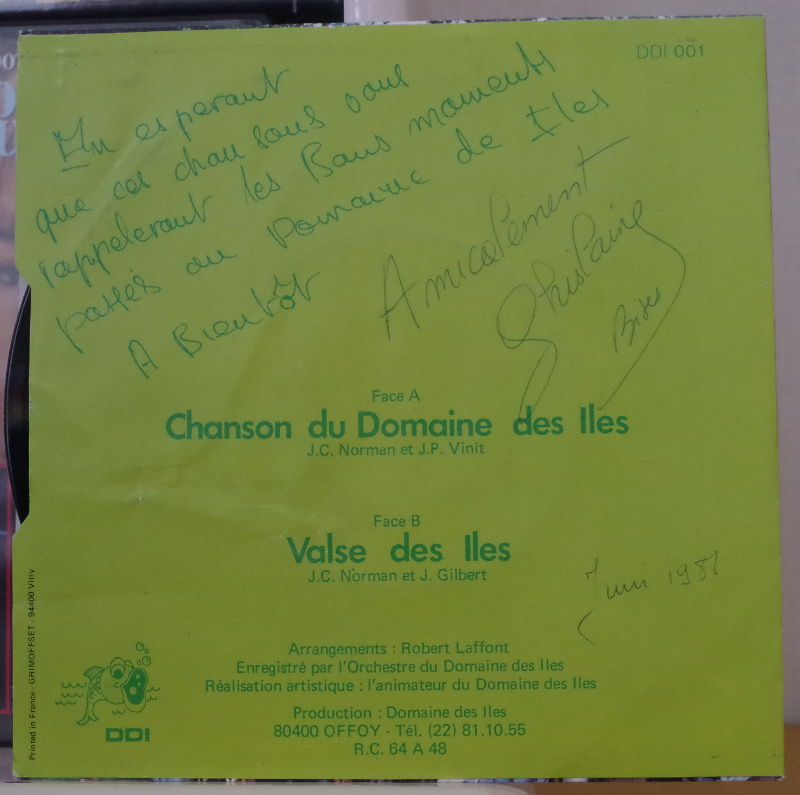 DDI 001
En esperant
que ces chansons vous
rappeleront les Bons moments
passés au Domaine de Iles
A Bientôt
Amicalement
Ghislaine
Bises
Face A
Chanson du Domaine des Iles
J.C. Norman et J.P. Vinit
Face B
Valse des Iles
J.C. Norman et J. Gilbert
Juin 1981
Arrangements : Robert Laffont
Enregistré par l'Orchestre du Domaine des Iles
Réalisation artistique : l'animateur du Domaine des Iles
Production : Domaine des Iles
80400 OFFOY - Tél. (22) 81.10.55
R.C. 64 A 48
DDI
Printed in France - GRIMOFFSET - 94400 Vitry